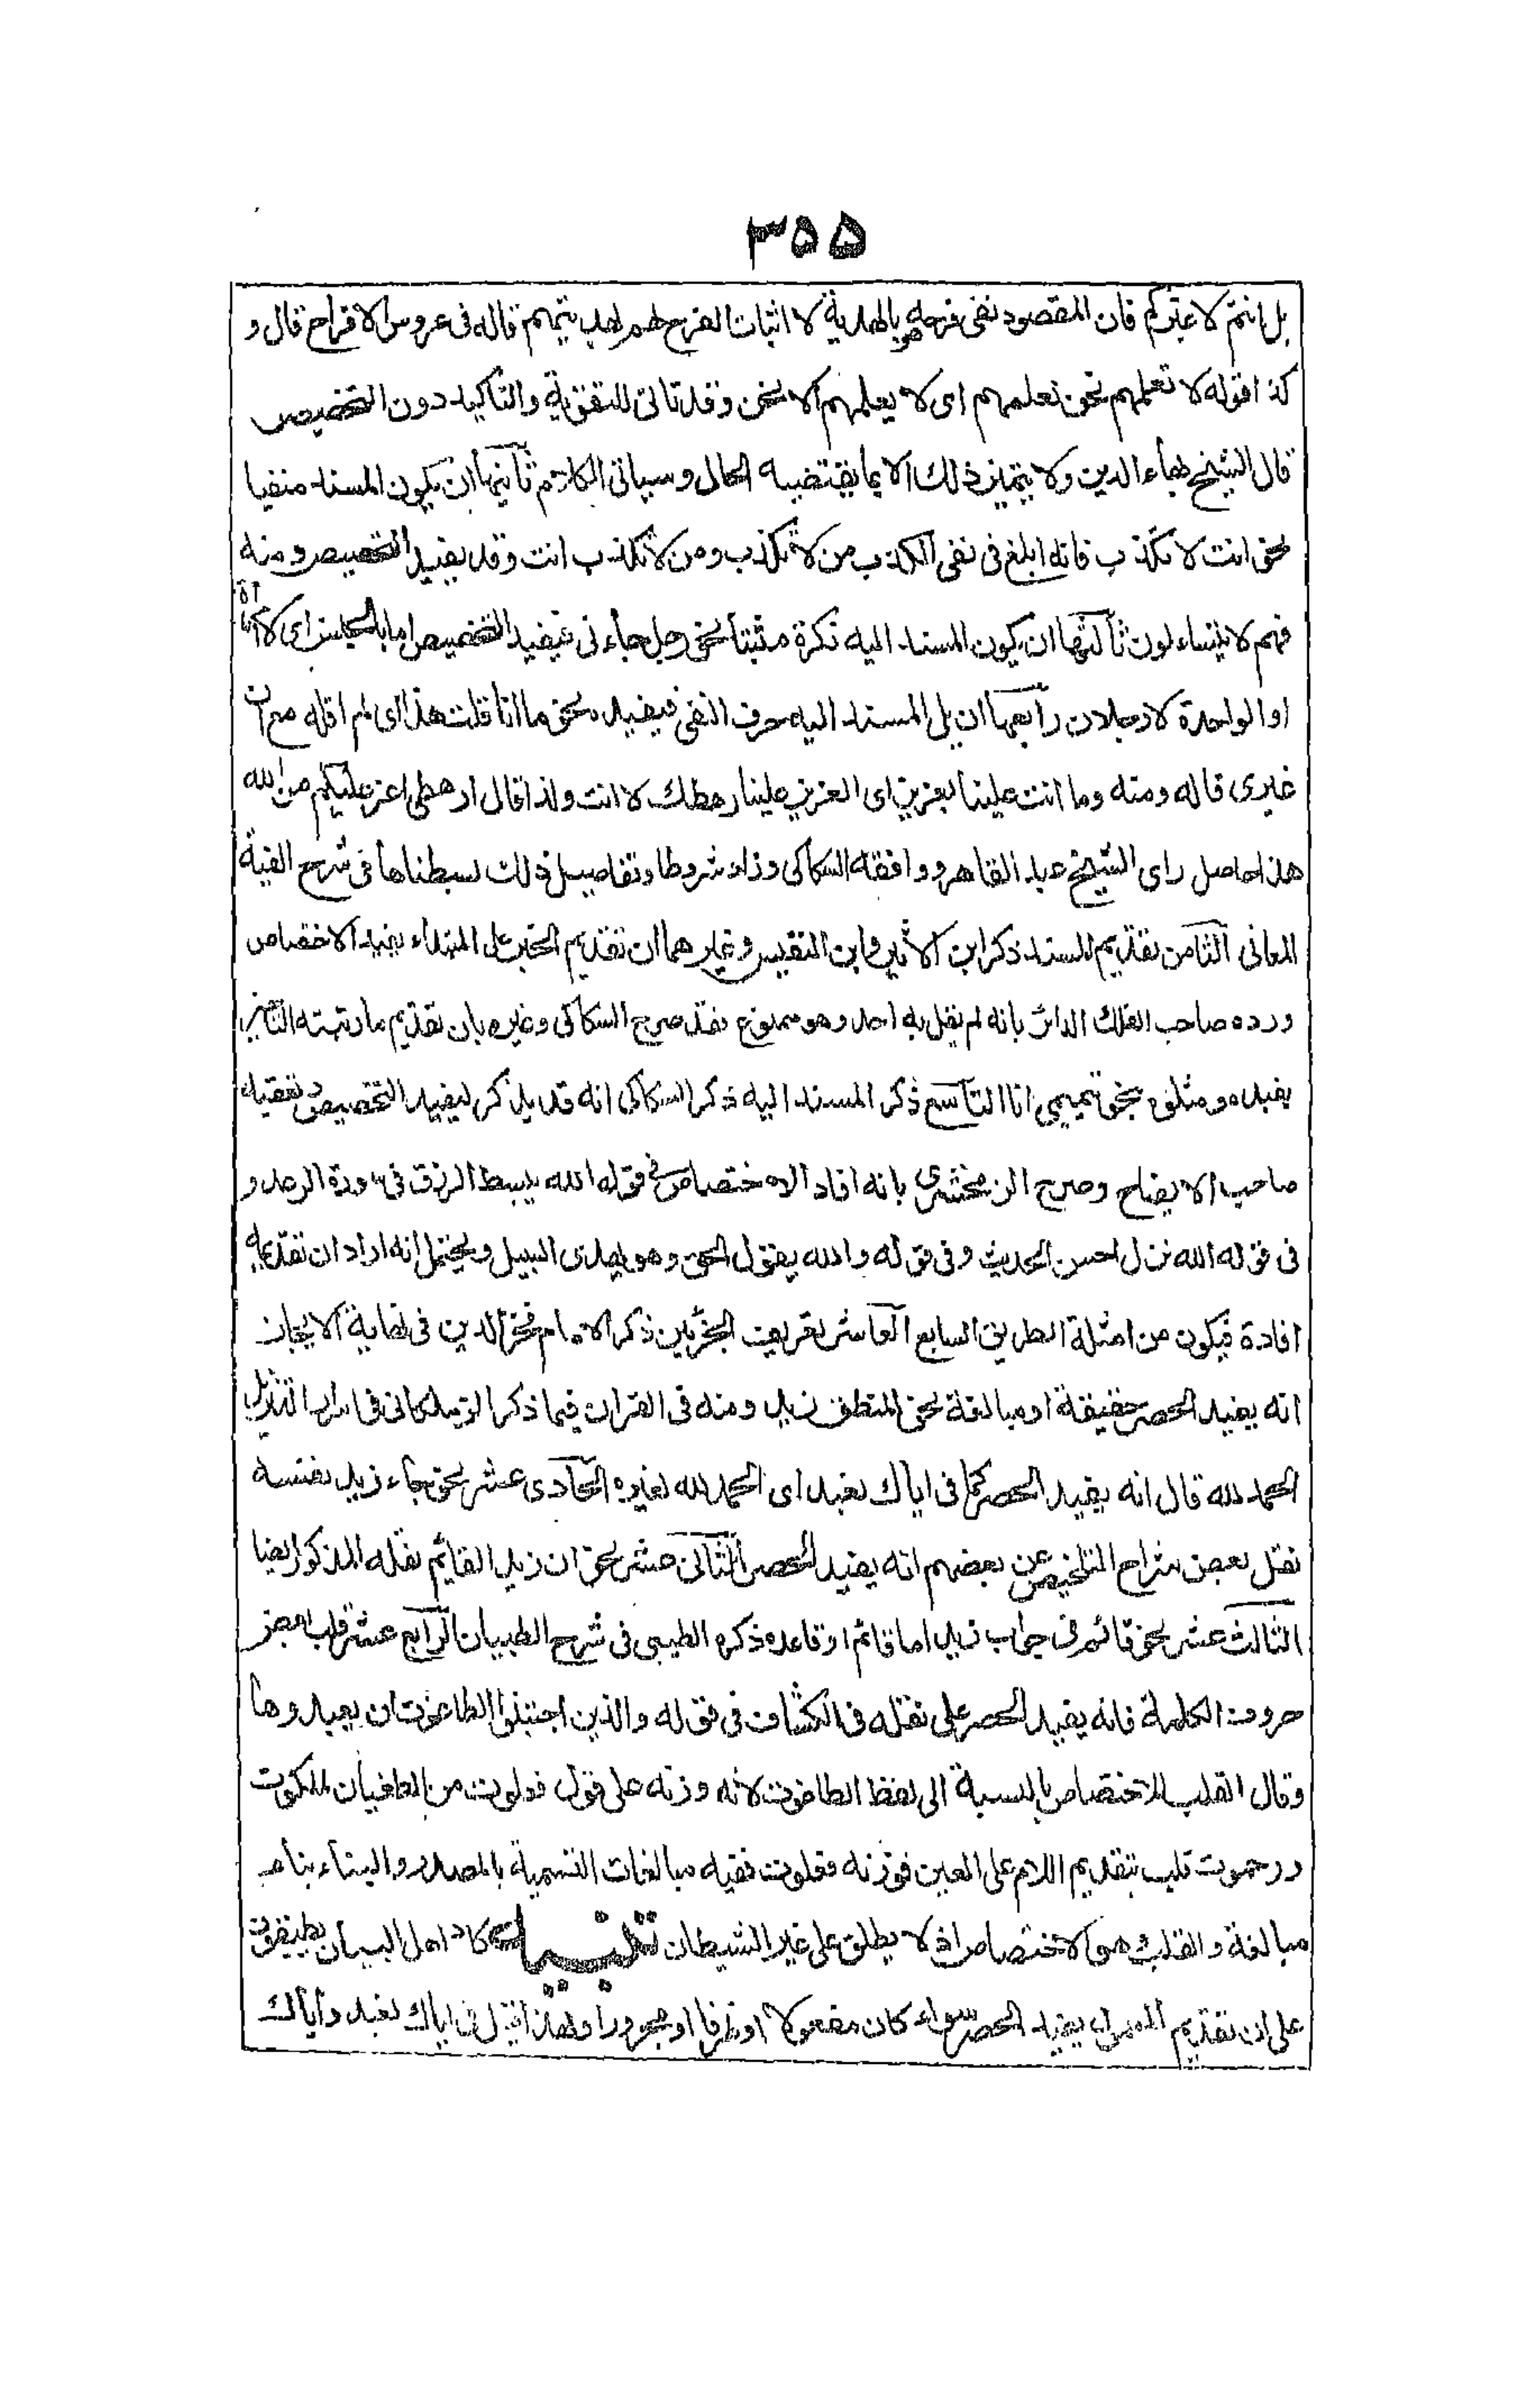 ۳۵۵
بل انتم لا غيركم فان المقصود نفى فرحه هو بالهدية لا اثبات الفرح لهم بهديتهم قاله فى عروس الافراح قال و
كذا قوله لا تعلمهم نحن نعلمهم اى لا يعلمهم الا نحن وقد تاتى للتقوية والتاكيد دون التخصيص
قال الشيخ بهاء الدين ولا يتميز ذلك الا بما يقتضيه الحال وسياتى الكلام ثانيها ان يكون المسند منفيا
نحو انت لا تكذب فانه ابلغ فى نفى الكذب من لا تكذب ومن لا تكذب انت وقد يفيد التخصيص ومنه
فهم لا يتساءلون ثالثها ان يكون المسند اليه نكرة مثبتا نحو رجل جاءنى فيفيد التخصيص اما بالجنس اى لا امرأة
او الواحدة لا رجلان رابعها ان يلى المسند اليه حرف النفى فيفيده نحو ما انا قلت هذا اى لم اقله مع ان
غيرى قاله ومنه وما انت علينا بعزيز اى العزيز علينا رهطك لا انت ولذا قال ارهطى اعز عليكم من الله
هذا حاصل راى الشيخ عبد القاهر ووافقه السكاكى وزاد شروطا وتفاصيل ذلك بسطناها فى شرح الفية
المعانى الثامن تقديم المسند ذكر ابن الاثير وابن النفيس وغيرهما ان تقديم الخبر على المبتداء يفيد الاختصاص
ورده صاحب الفلك الدائر بانه لم يقل به احد وهو ممنوع فقد صرح السكاكى وغيره بان تقديم ما رتبته التاخير
يفيده ومثلوه بنحو تميمى انا التاسع ذكر المسند اليه ذكر السكاكى انه قد يذكر ليفيد التخصيص وتعقبه
صاحب الايضاح وصرح الزمخشرى بانه افاد الاختصاص فى قوله الله يبسط الرزق فى سورة الرعد و
فى قوله الله نزل احسن الحديث وفى قوله والله يقول الحق وهو يهدى السبيل ويحتمل انه اراد ان تقديمه
افاده فيكون من امثلة الطريق السابع العاشر تعريف الجزئين ذكر الامام فخر الدين فى نهاية الايجاز
انه يفيد الحصر حقيقة او مبالغة نحو المنطلق زيد ومنه فى القران فيما ذكر الزملكانى فى اسرار التنزيل
الحمد لله قال انه يفيد الحصر كما فى اياك نعبد اى الحمد لله لا لغيره الحادى عشر نحو جاء زيد نفسه
نقل بعض شراح التلخيص عن بعضهم انه يفيد الحصر الثانى عشر نحو ان زيدا لقائم نقله المذكور ايضا
الثالث عشر نحو قائم فى جواب زيد اما قائم او قاعد ذكره الطيبى فى شرح التبيان الرابع عشر قلب بعض
حروف الكلمة فانه يفيد الحصر على نقله فى الكشاف فى قوله والذين اجتنبوا الطاغوت ان يعبدوها
وقال القلب للاختصاص بالنسبة الى لفظ الطاغوت لانه وزنه على قول فعلوت من الطغيان لملكوت
ورحموت قلب بتقديم اللام على العين فوزنه فلعوت ففيه مبالغات التسمية بالمصدر والبناء بناء
مبالغة والقلب هو للاختصاص اذ لا يطلق على غير الشيطان تنبيه كاد اهل البيان يطبقون
على ان تقديم المعمول يفيد الحصر سواء كان مفعولا او ظرفا او مجرورا ولهذا قيل فى اياك نعبد واياك